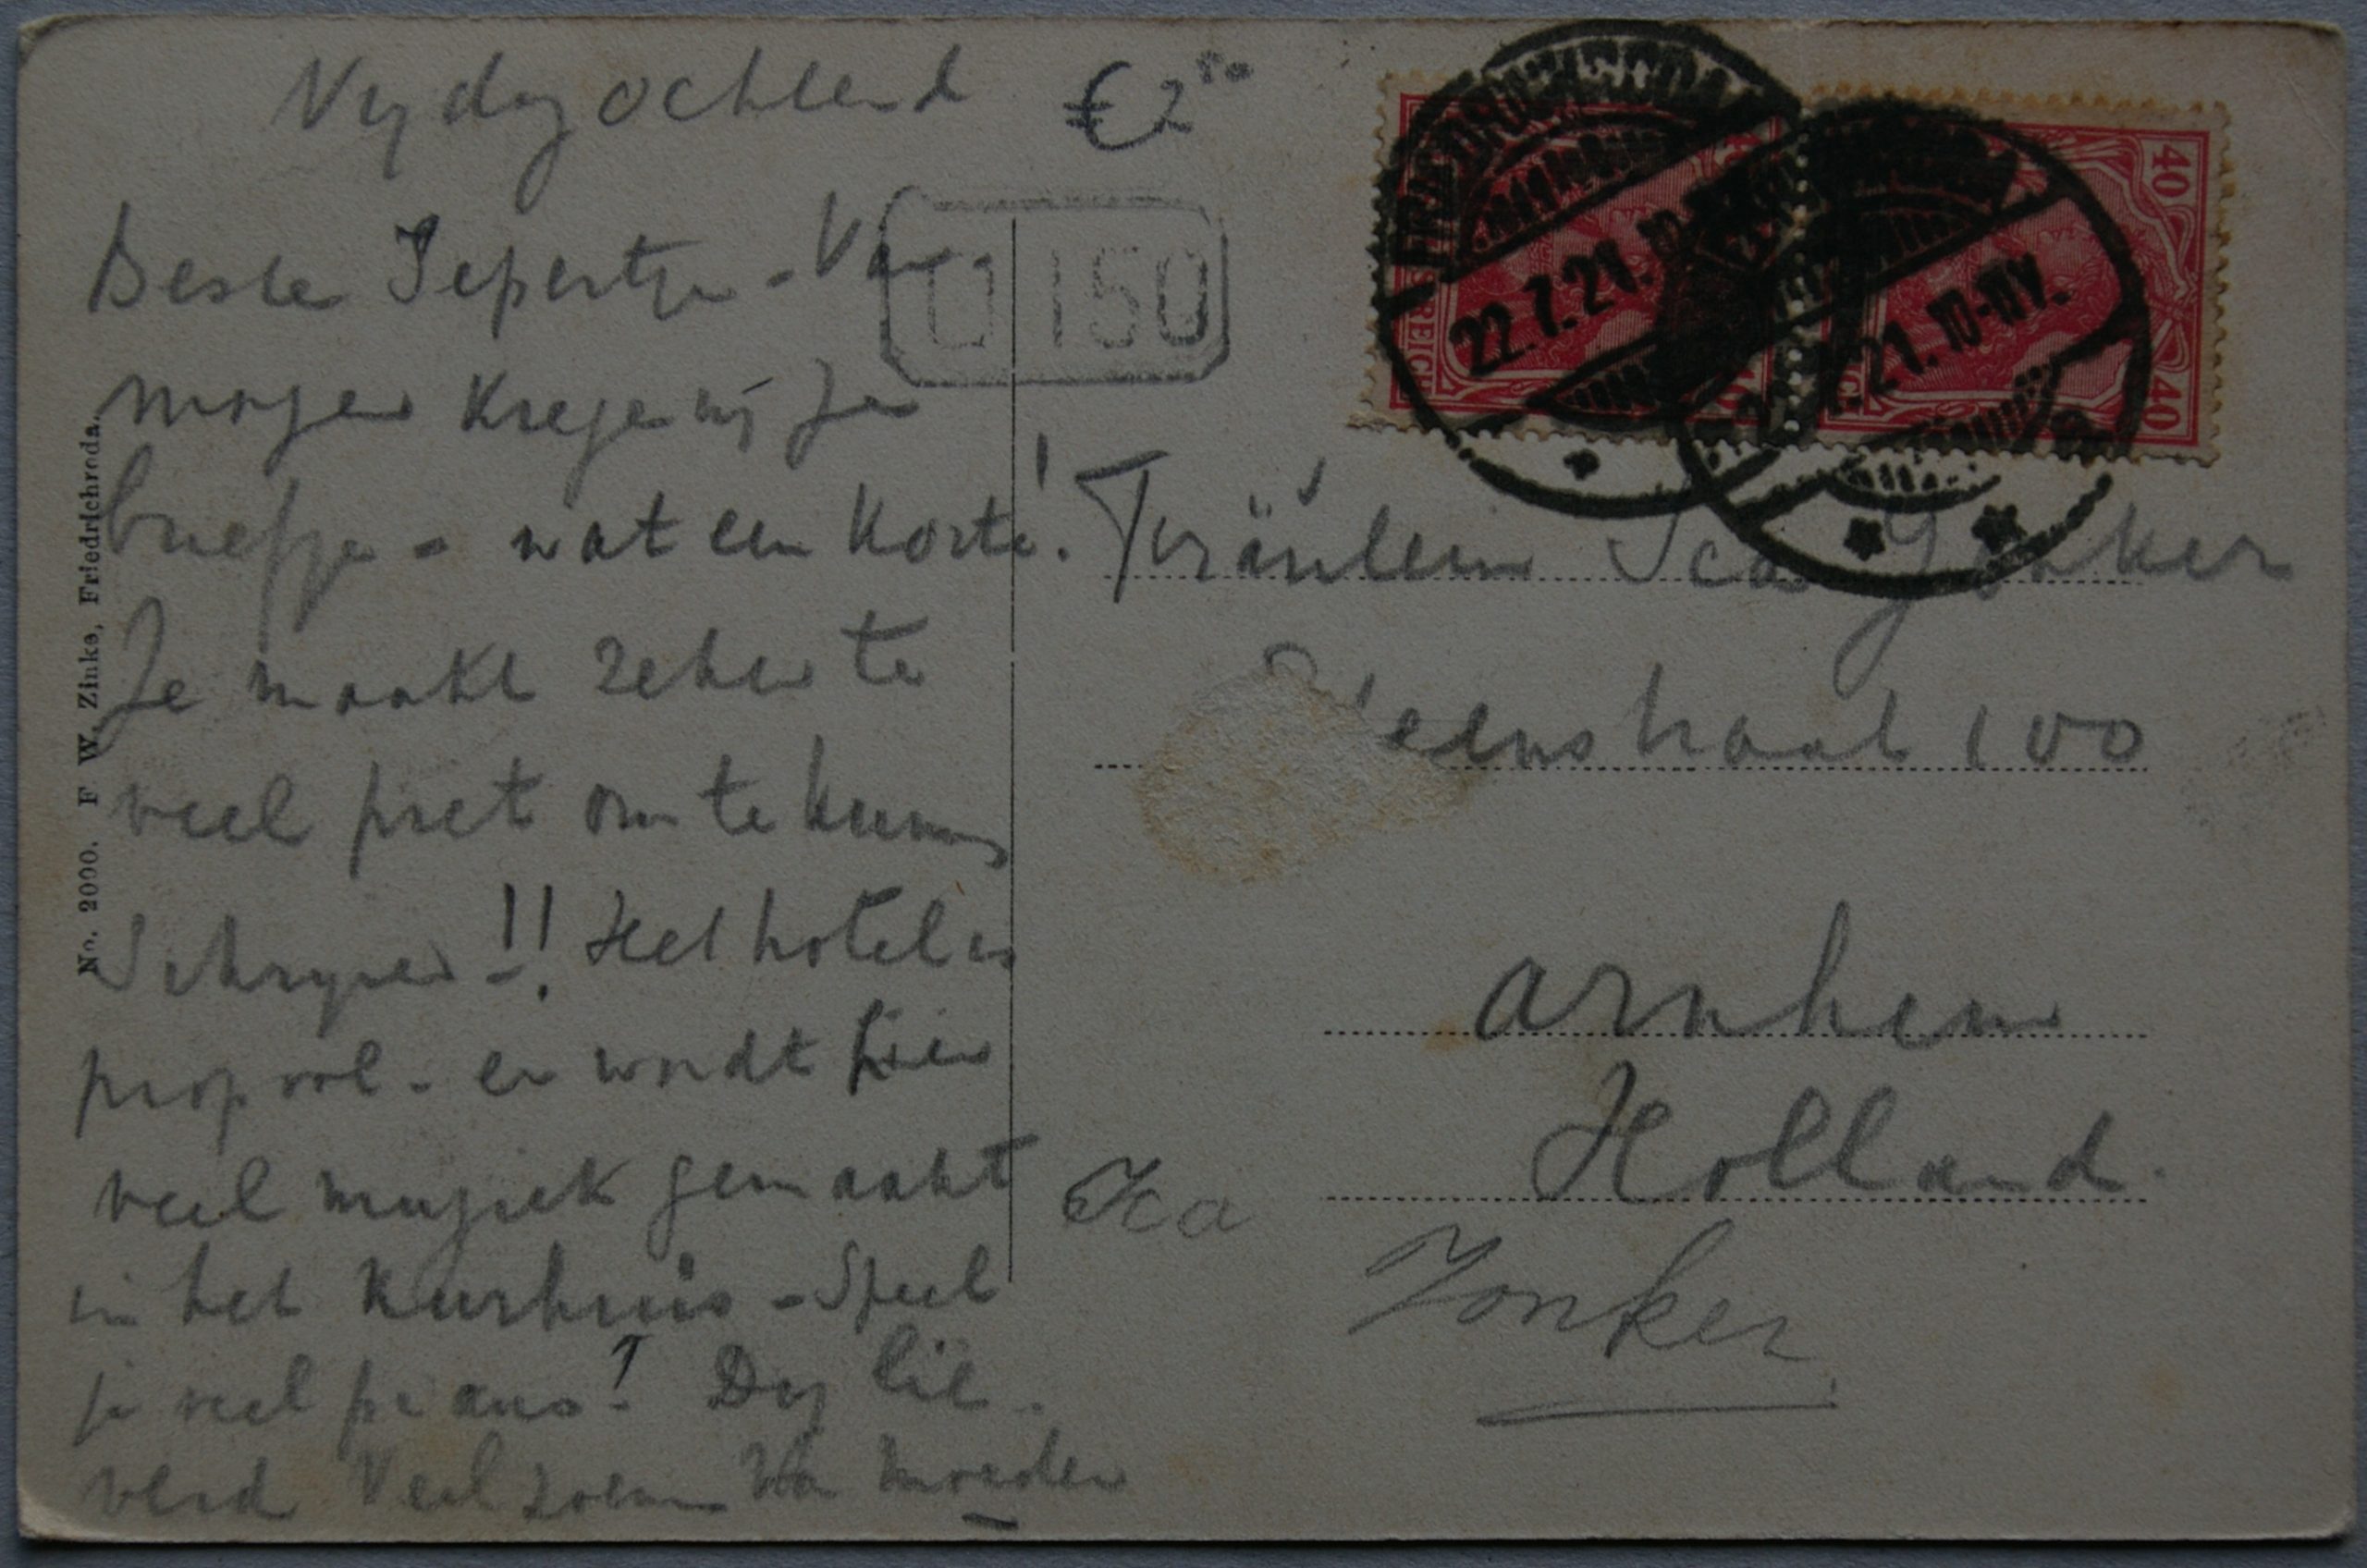 Vrydagochtend
€2 50
Beste Pepertje - Van
morgen kregen wij je
briefje - wat een korte!
Je maakt zeker te
veel pret om te kunnen
Schryven -!! Het hotel is
propvol - er wordt hier
veel muziek gemaakt
in het Kurhaus - Speel
je veel piano! Dag lie-
verd Veel zoenen Van Moeder
No. 2000. F. W. Zinke, Friedrichroda.
Ü 150
22.7.21. 10-11V.
21. 10-11V.
40
40
REICH
Fräulein Ica Jonker
eenstraat 100
Arnhem
Holland.
Ica
Jonker